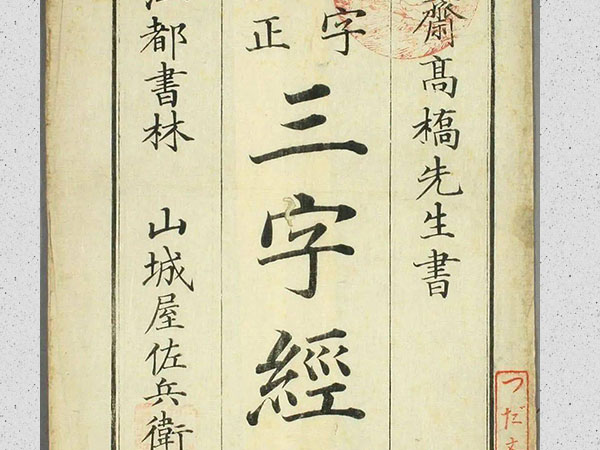 齋髙橋先生書
字正
三字經
都書林 山城屋佐兵衛
つだ